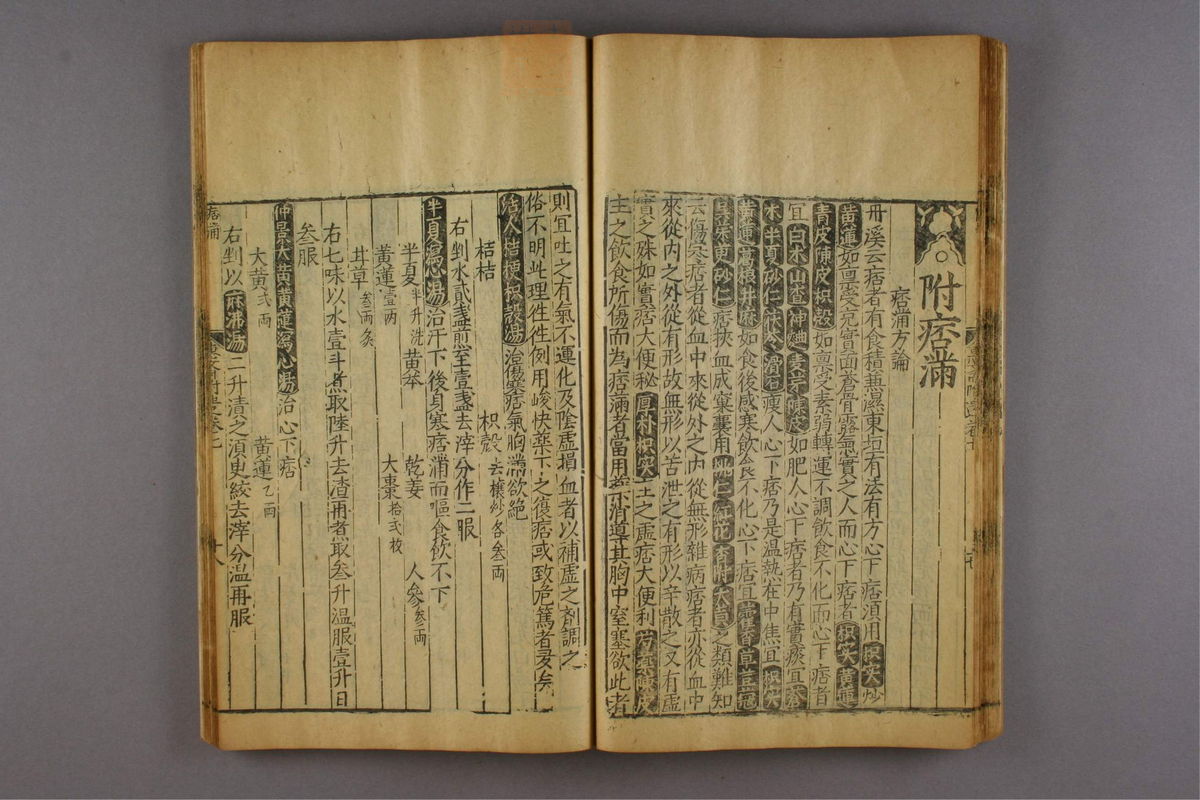 附痞滿
痞滿方論
丹溪云痞者有食積兼濕東垣有法有方心下痞須用枳实炒
黃連如禀受充實面蒼骨露氣實之人而心下痞者枳实黃連
青皮陳皮枳殼如禀受素弱轉運不調飲食不化而心下痞者
宜白朮山查神麯麦芽陳皮如肥人心下痞者乃有實痰宜蒼
朮半夏砂仁茯苓滑石瘦人心下痞乃是温热在中焦宜枳实
黃連葛根升麻如食後感寒飲食不化心下痞宜藿香草豆蔻
吳茱萸砂仁痞挾血成窠囊用桃仁紅花香附大黃之類難知
云傷寒痞者從血中來從外之内從無形雜病痞者亦從血中
來從内之外從有形故無形以苦泄之有形以辛散之又有虚
實之殊如實痞大便秘厚朴枳实主之虚痞大便利芍藥陳皮
主之飲食所傷而為痞滿者當用藥消導其胸中窒塞欲此者
則宜吐之有氣不運化及陰虚損血者以補虚之剤調之
俗不明此理徃徃例用峻快藥下之復痞或致危篤者多矣
活人桔梗枳殼湯治傷寒痞氣胸滿欲絶
桔桔 枳殼去穰炒各叁両
右剉水貳盞煎至壹盞去滓分作二服
半夏瀉心湯治汗下後身寒痞滿而嘔食飲不下
半夏半升洗 黄芩 乾姜 人參叁両
黄連壹両 大棗拾弍枚
甘草叁両炙
右七味以水壹斗煮取陸升去渣再煮取叁升温服壹升日
叁服
仲景大黄黄連瀉心湯治心下痞
大黄弍両 黄連乙両
右剉以麻沸湯二升漬之須臾絞去滓分温再服
痞滿